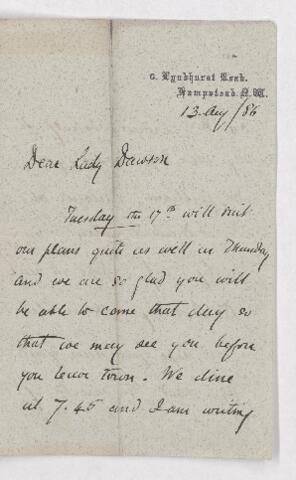 6. Lyndhurst Road.
Hampstead. N.W.
13 Aug/86
Dear Lady Dawson
Tuesday the 17th will suit
our plans quite as well as Thursday
and we are so glad you will
be able to come that day so
that we may see you before
you leave town. We dine
at 7.45 and I am writing